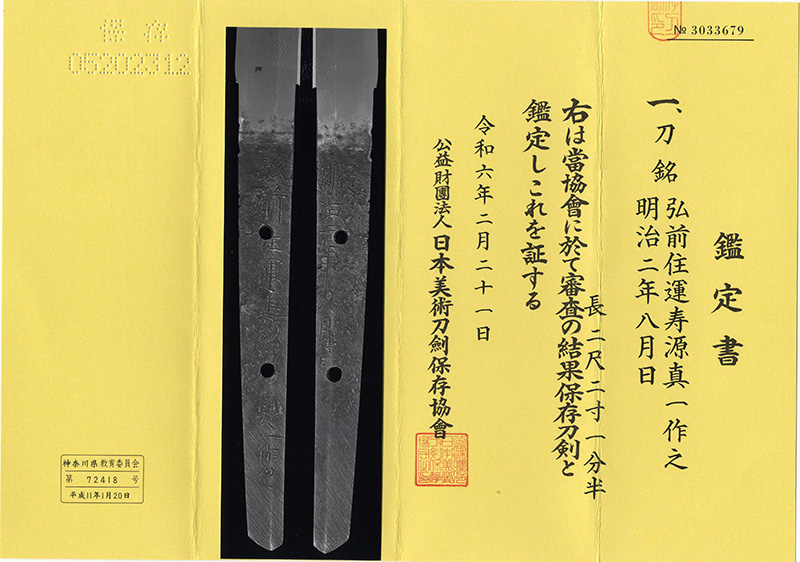 № 3033679
鑑定書
一、刀 銘 弘前住運寿源真一作之
明治二年八月日
長二尺二寸一分半
右は當協會に於て審査の結果保存刀剣と
鑑定しこれを証する
令和六年二月二十一日
公益財團法人日本美術刀劍保存協會
保存
05202312
神奈川県教育委員会
第 72418 号
平成11年1月20日